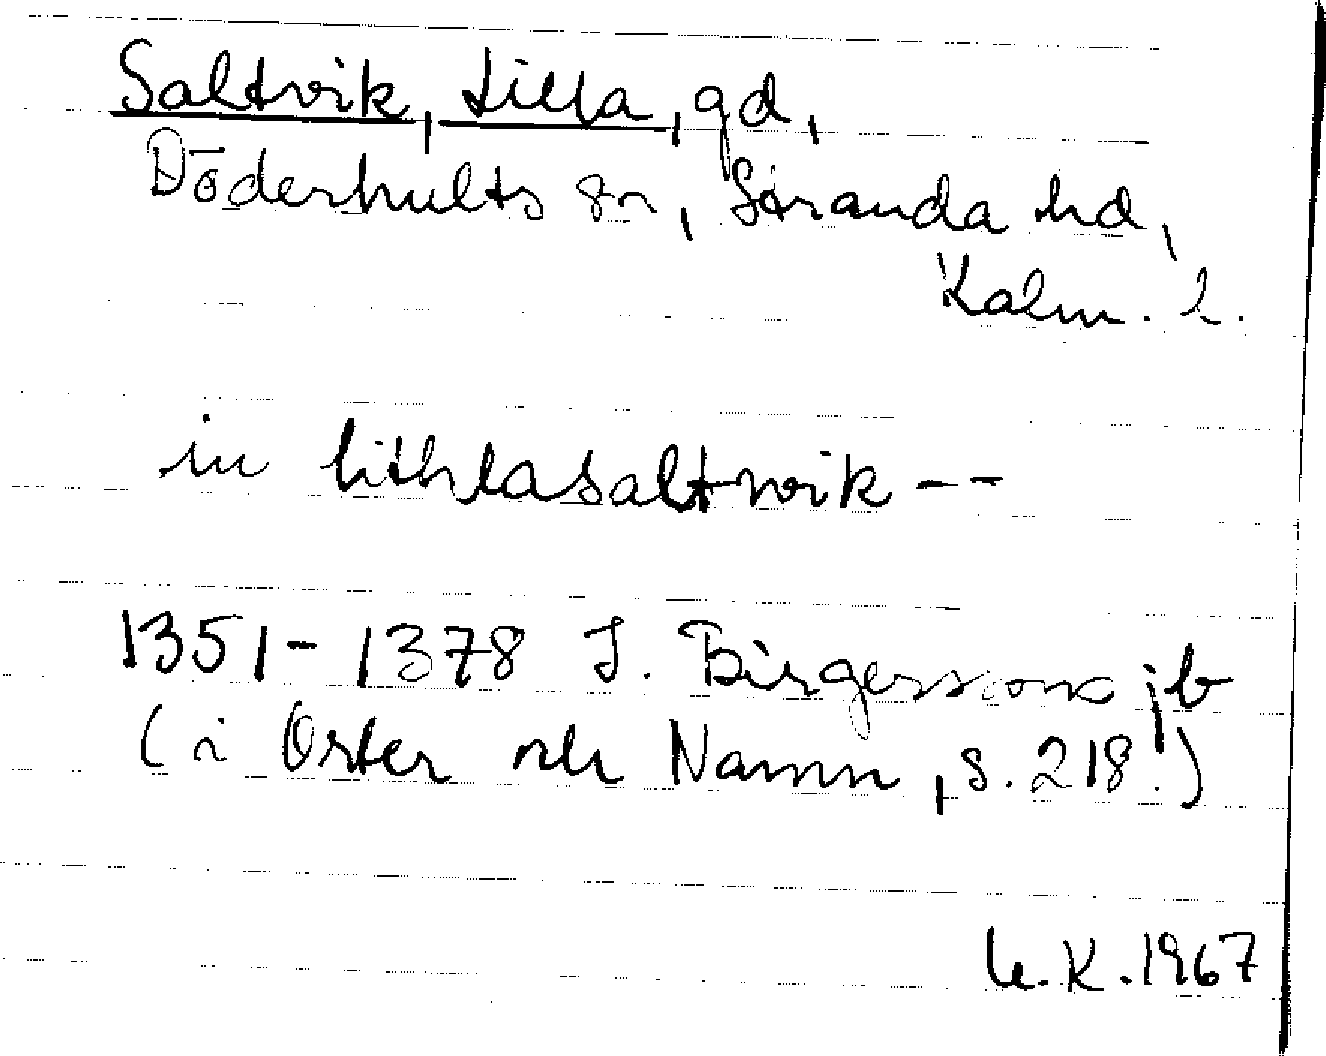 Saltvik, Lilla, gd,
Döderhults sn, Stranda hd,
Kalm. l.
in lithlasaltwik --
1351-1378 J. Birgerssons jb
(i Orter och Namn, s. 218.)
U.K. 1967